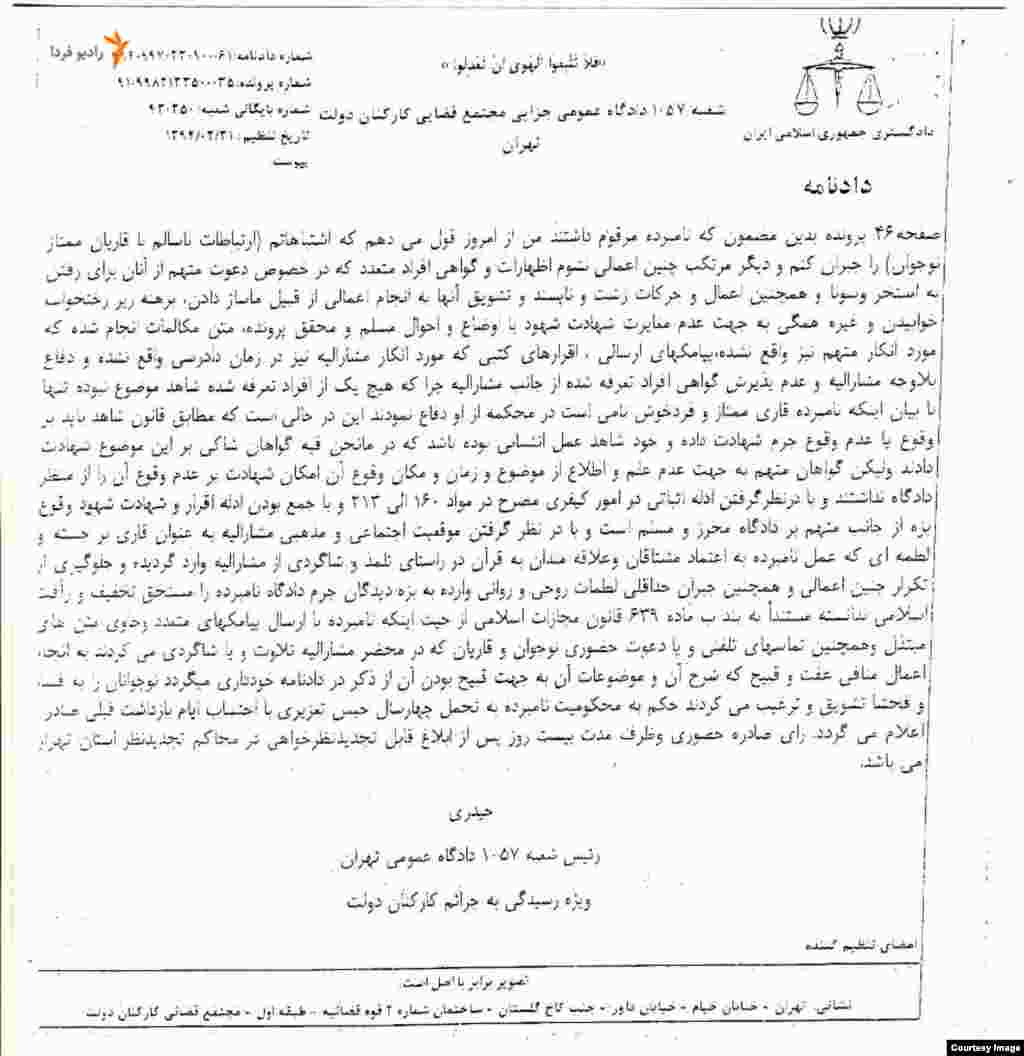 رادیو فردا
«فلا تتبعوا الهوی ان تعدلوا»
شعبه ۱۰۵۷ دادگاه عمومی جزایی مجتمع قضایی کارکنان دولت
تهران
شماره پرونده: ۹۱۰۹۹۸۲۱۳۳۵۰۰۰۳۵
شماره بایگانی شعبه: ۹۲۰۲۵۰
پیوست
دادگستری جمهوری اسلامی ایران
دادنامه
صفحه ۴۶ پرونده بدین مضمون که نامبرده مرقوم داشتند من از امروز قول می دهم که اشتباهاتم (ارتباطات ناسالم با قاریان ممتاز
نوجوان) را جبران کنم و دیگر مرتکب چنین اعمالی نشوم اظهارات و گواهی افراد متعدد که در خصوص دعوت متهم از آنان برای رفتن
به استخر وسونا و همچنین اعمال و حرکات زشت و ناپسند و تشویق آنها به انجام اعمالی از قبیل ماساژ دادن، برهنه زیر رختخواب
خوابیدن و غیره همگی به جهت عدم مغایرت شهادت شهود با اوضاع و احوال مسلم و محقق پرونده، متن مکالمات انجام شده که
مورد انکار متهم نیز واقع نشده،پیامکهای ارسالی ، اقرارهای کتبی که مورد انکار مشارالیه نیز در زمان دادرسی واقع نشده و دفاع
بلاوجه مشارالیه و عدم پذیرش گواهی افراد تعرفه شده از جانب مشارالیه چرا که هیچ یک از افراد تعرفه شده شاهد موضوع نبوده تنها
با بیان اینکه نامبرده قاری ممتاز و فردخوش نامی است در محکمه از او دفاع نمودند این در حالی است که مطابق قانون شاهد باید بر
وقوع یا عدم وقوع جرم شهادت داده و خود شاهد عمل انتسابی بوده باشد که در مانحن فیه گواهان شاکی بر این موضوع شهادت
دادند ولیکن گواهان متهم به جهت عدم علم و اطلاع از موضوع و زمان و مکان وقوع آن امکان شهادت بر عدم وقوع آن را از منظر
دادگاه نداشتند و با درنظرگرفتن ادله اثباتی در امور کیفری مصرح در مواد ۱۶۰ الی ۲۱۳ و با جمع بودن ادله اقرار و شهادت شهود وقوع
بزه از جانب متهم بر دادگاه محرز و مسلم است و با در نظر گرفتن موقعیت اجتماعی و مذهبی مشارالیه به عنوان قاری بر جسته و
لطمه ای که عمل نامبرده به اعتماد مشتاقان وعلاقه مندان به قرآن در راستای تلمذ و شاگردی از مشارالیه وارد گردیده و جلوگیری از
تکرار چنین اعمالی و همچنین جبران حداقلی لطمات روحی و روانی وارده به بزه دیدگان جرم دادگاه نامبرده را مستحق تخفیف و رأفت
اسلامی ندانسته مستنداً به بند ب ماده ۶۳۹ قانون مجازات اسلامی از حیث اینکه نامبرده با ارسال پیامکهای متعدد وحاوی متن های
مبتذل وهمچنین تماسهای تلفنی و یا دعوت حضوری نوجوان و قاریان که در محضر مشارالیه تلاوت و یا شاگردی می کردند به انجام
اعمال منافی عفت و قبیح که شرح آن و موضوعات آن به جهت قبیح بودن آن از ذکر در دادنامه خودداری میگردد نوجوانان را به فساد
و فحشا تشویق و ترغیب می کردند حکم به محکومیت نامبرده به تحمل چهارسال حبس تعزیری با احتساب ایام بازداشت قبلی صادر
اعلام می گردد. رای صادره حضوری وظرف مدت بیست روز پس از ابلاغ قابل تجدیدنظرخواهی در محاکم تجدیدنظر استان تهران
می باشد.
حیدری
رئیس شعبه ۱۰۵۷ دادگاه عمومی تهران
ویژه رسیدگی به جرائم کارکنان دولت
امضای تنظیم کننده
تصویر برابر با اصل است.
نشانی: تهران - خیابان خیام - خیابان داور - جنب کاخ گلستان - ساختمان شماره ۲ قوه قضائیه - طبقه اول - مجتمع قضائی کارکنان دولت
Courtesy Image